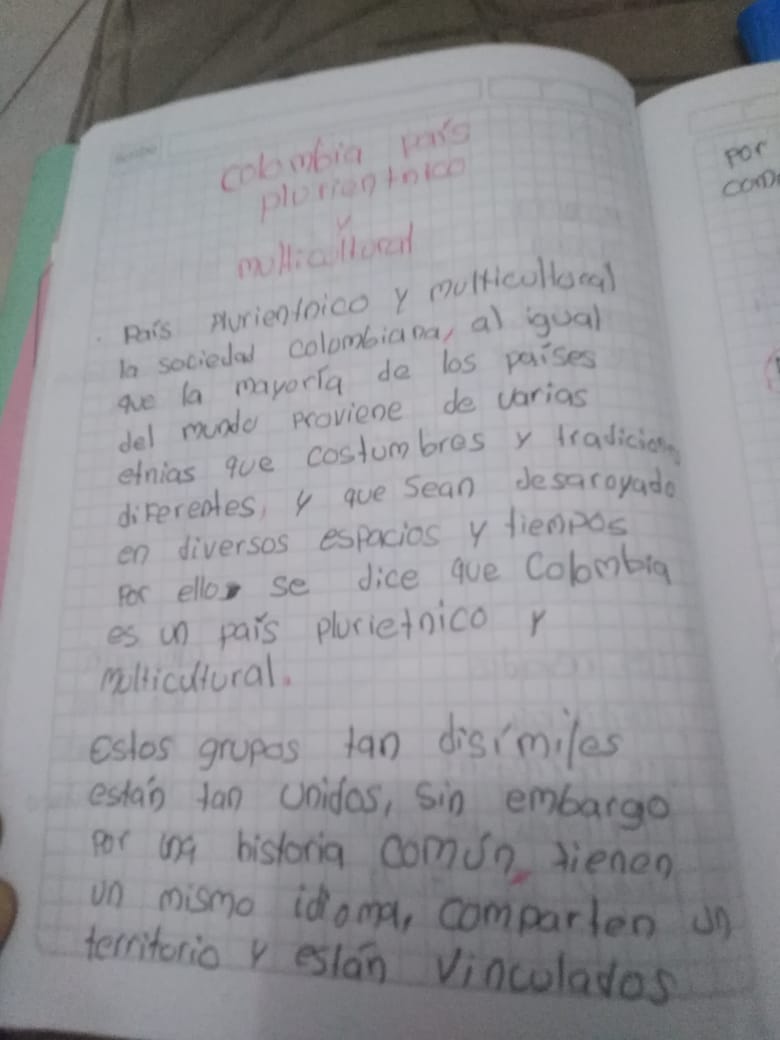 colombia país
plurientnico
y
multicultural
País plurientnico y multicultural
la sociedad colombiana, al igual
que la mayoría de los países
del mundo proviene de varias
etnias que costumbres y tradiciones
diferentes, y que sean desaroyado
en diversos espacios y tiempos
Por ello se dice que Colombia
es un país plurietnico y
multicultural.
estos grupos tan disímiles
están tan unidos, sin embargo
por una historia común, tienen
un mismo idioma, comparten un
territorio y están vinculados
por